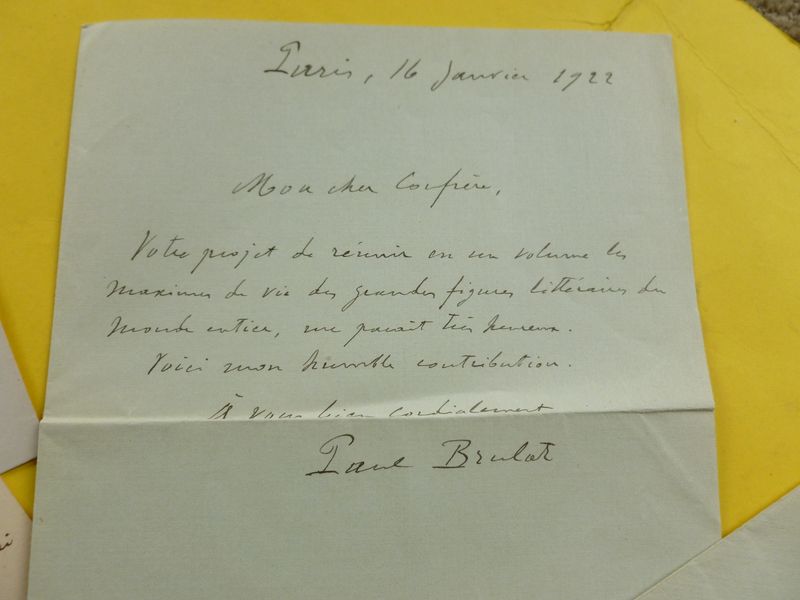 Paris, 16 Janvier 1922
Mon cher Confrère,
Votre projet de réunir en un volume les
maximes de vie des grandes figures littéraires du
monde entier, me parait très heureux.
Voici mon humble contribution.
À vous bien cordialement
Paul Brulat